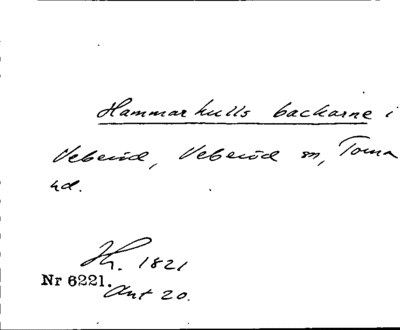 Hammarkulls backarne i
Veberöd, Veberöd sn, Torna
hd.
Jh. 1821
Nr 6221.
Ant 20.